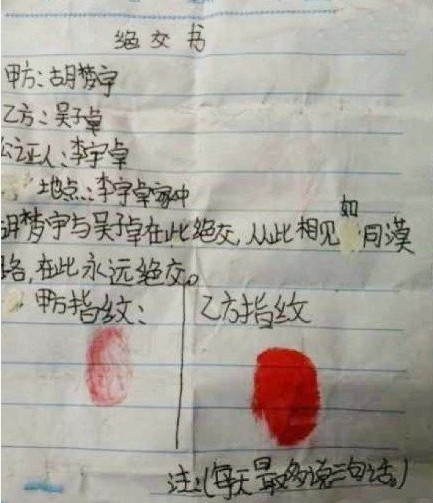 绝交书
甲方：胡梦宇
乙方：吴子卓
公证人：李宇卓
地点：李宇卓家中
胡梦宇与吴子卓在此绝交，从此相见如同漠
路，在此永远绝交。
甲方指纹：
乙方指纹
注：(每天最多说三句话。)